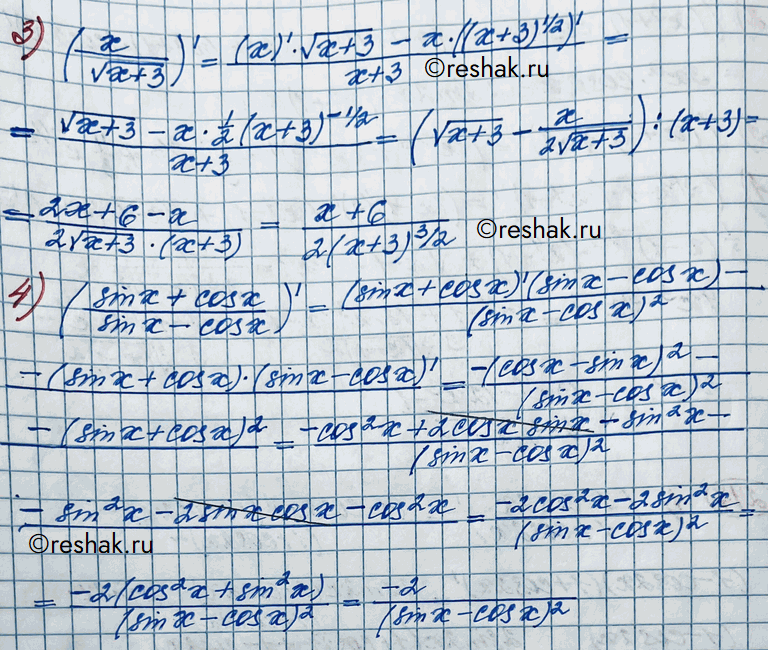 3) (x/√(x+3))' = ((x)'·√(x+3) − x·((x+3)^(1/2))')/(x+3) =
©reshak.ru
= (√(x+3) − x·1/2(x+3)^(−1/2))/(x+3) = (√(x+3) − x/(2√(x+3))) : (x+3) =
= (2x+6−x)/(2√(x+3)·(x+3)) = (x+6)/(2(x+3)^(3/2)) ©reshak.ru
4) ((sinx + cosx)/(sinx − cosx))' = ((sinx+cosx)'(sinx−cosx) −)/(sinx−cosx)²
−(sinx+cosx)·(sinx−cosx)' = (−(cosx−sinx)² −)/(sinx−cosx)²
−(sinx+cosx)² = (−cos²x + 2cosx sinx − sin²x −)/(sinx−cosx)²
− sin²x − 2sinx cosx − cos²x = (−2cos²x − 2sin²x)/(sinx−cosx)² =
©reshak.ru
= (−2(cos²x + sin²x))/(sinx−cosx)² = −2/(sinx−cosx)²